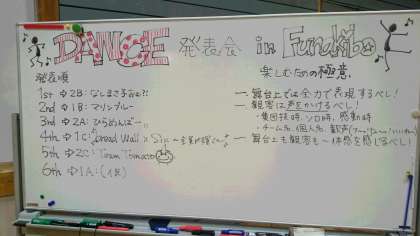 DANCE 発表会 in Funakibo
発表順
1st ⇒ 2B:
2nd ⇒ 1B: マリンブルー
3rd ⇒ 2A: ひらめんぱー
4th ⇒ 1C: Bread Wall ×
5th ⇒ 2C: Team Tomato
6th ⇒ 1A: (仮)
楽しむための極意
一 舞台上では全力で表現するべし!
一 観客は声をかけるべし!
・集団技時、ソロ時、感動時
・チーム名、個人名、歓声
一 舞台上も観客も一体感を感じるべし!